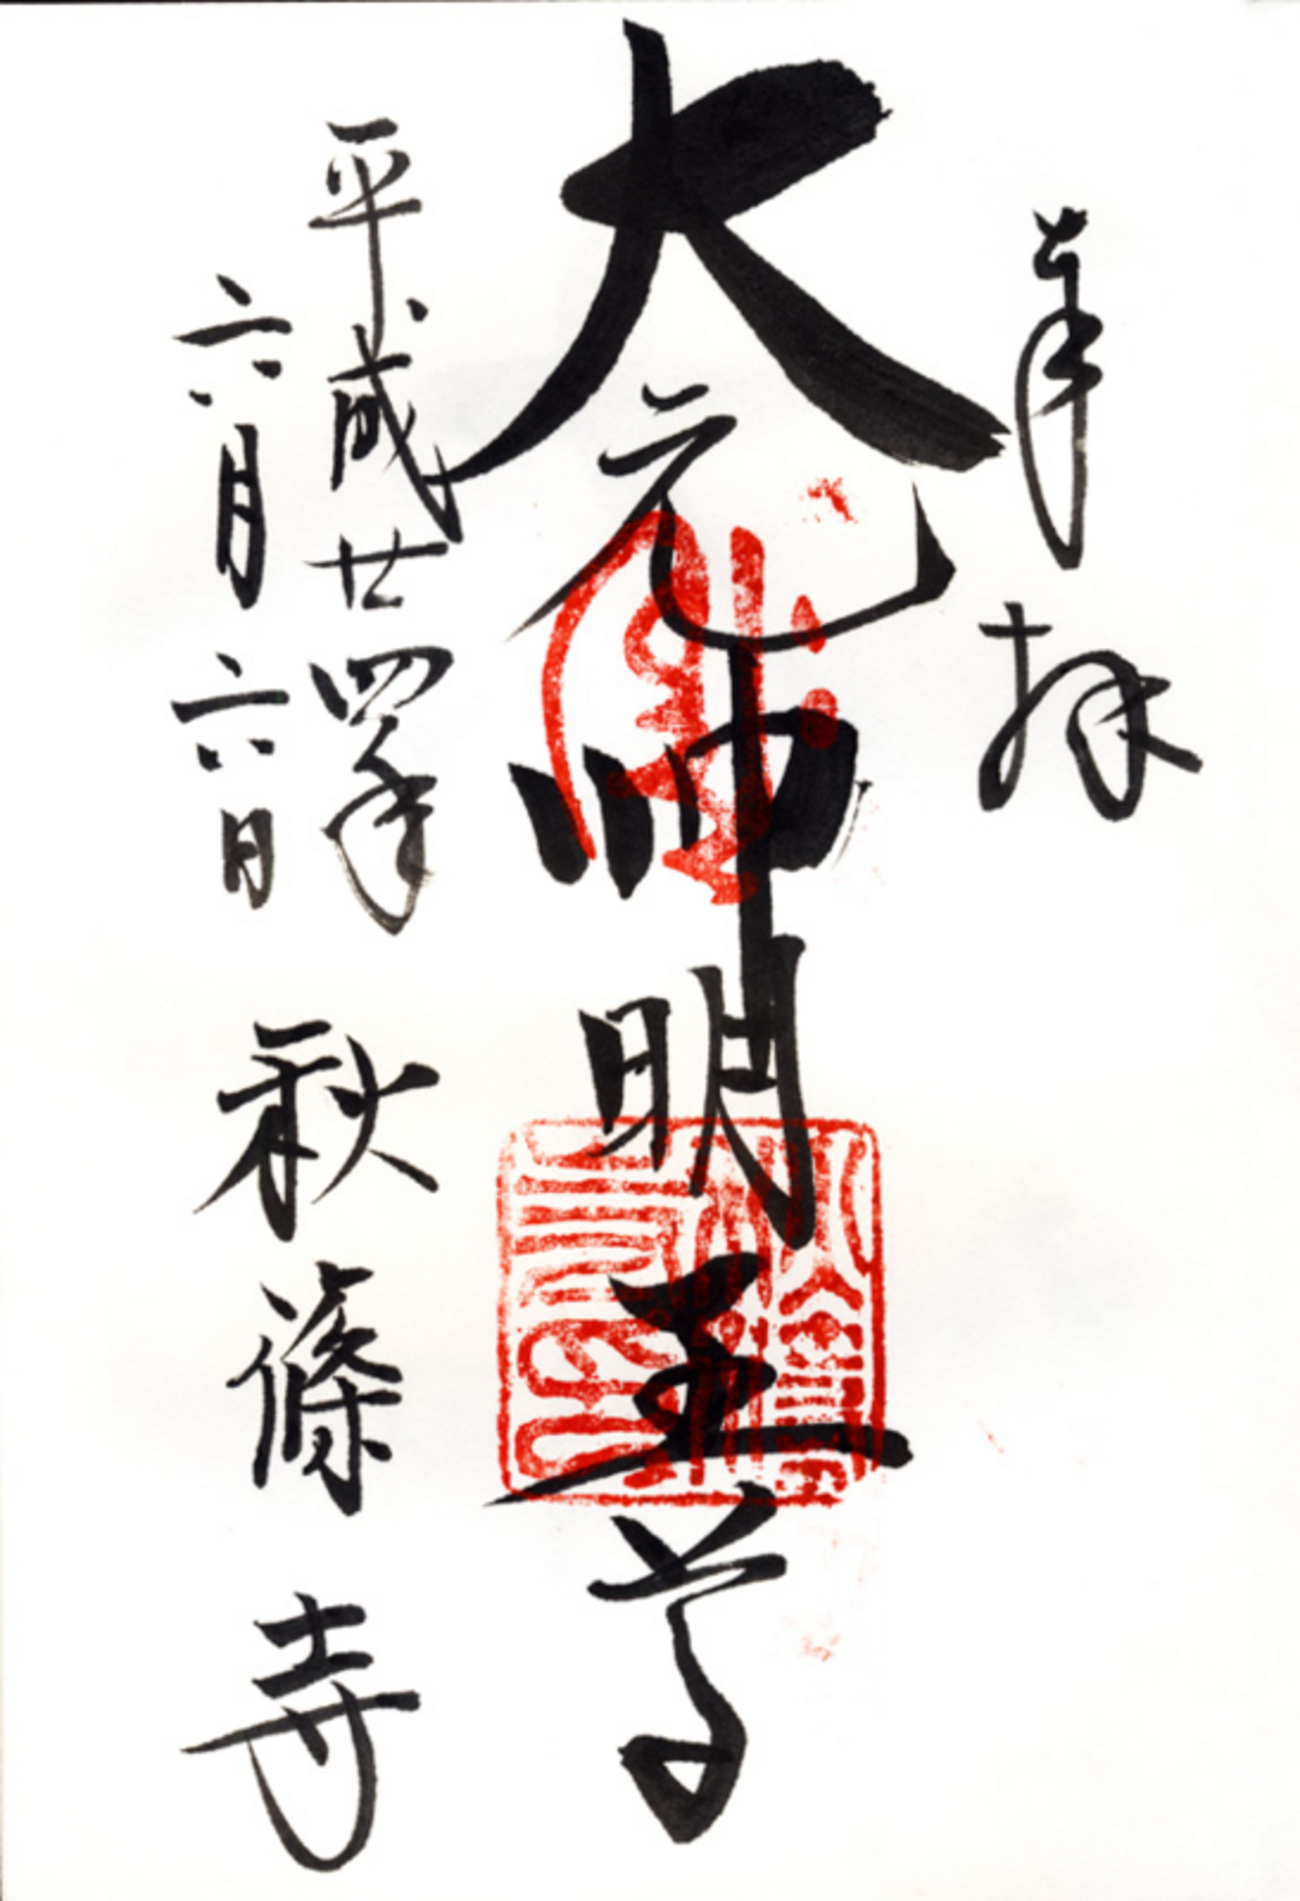 奉拝
大元帥明王尊
平成廿四年
六月六日
秋篠寺